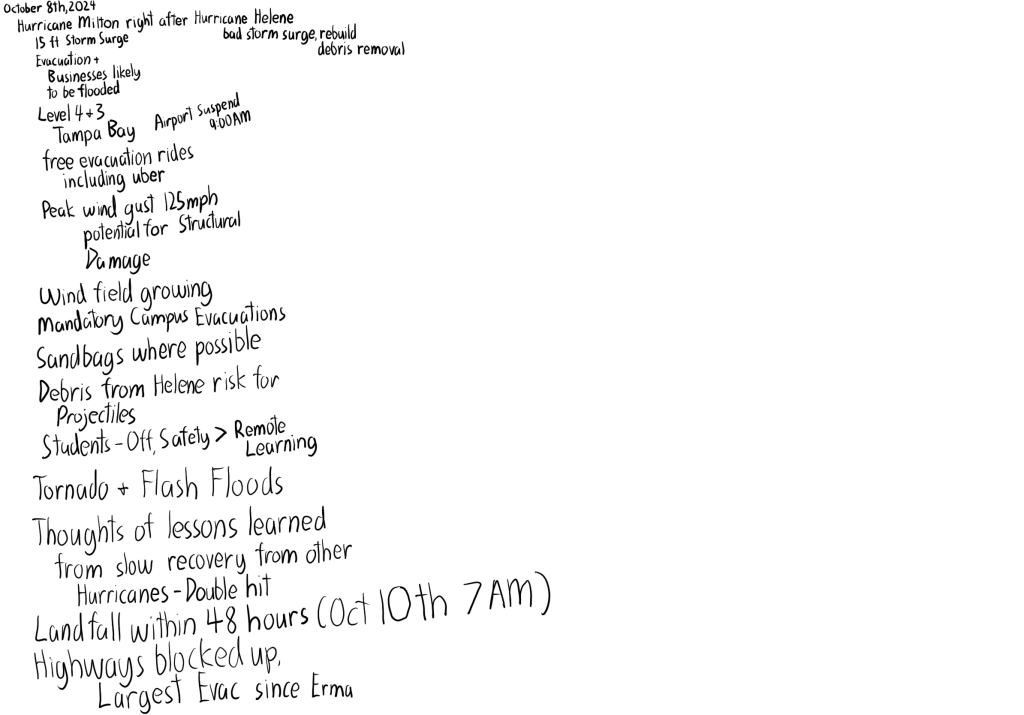 October 8th, 2024
Hurricane Milton right after Hurricane Helene
15 ft Storm Surge
bad storm surge, rebuild
debris removal
Evacuation +
Businesses likely
to be flooded
Level 4+3
Tampa Bay
Airport Suspend
9:00AM
free evacuation rides
including uber
Peak wind gust 125mph
potential for Structural
Damage
Wind field growing
Mandatory Campus Evacuations
Sandbags where possible
Debris from Helene risk for
Projectiles
Students - Off, Safety > Remote
Learning
Tornado + Flash Floods
Thoughts of lessons learned
from slow recovery from other
Hurricanes - Double hit
Landfall within 48 hours (Oct 10th 7AM)
Highways blocked up,
Largest Evac since Erma